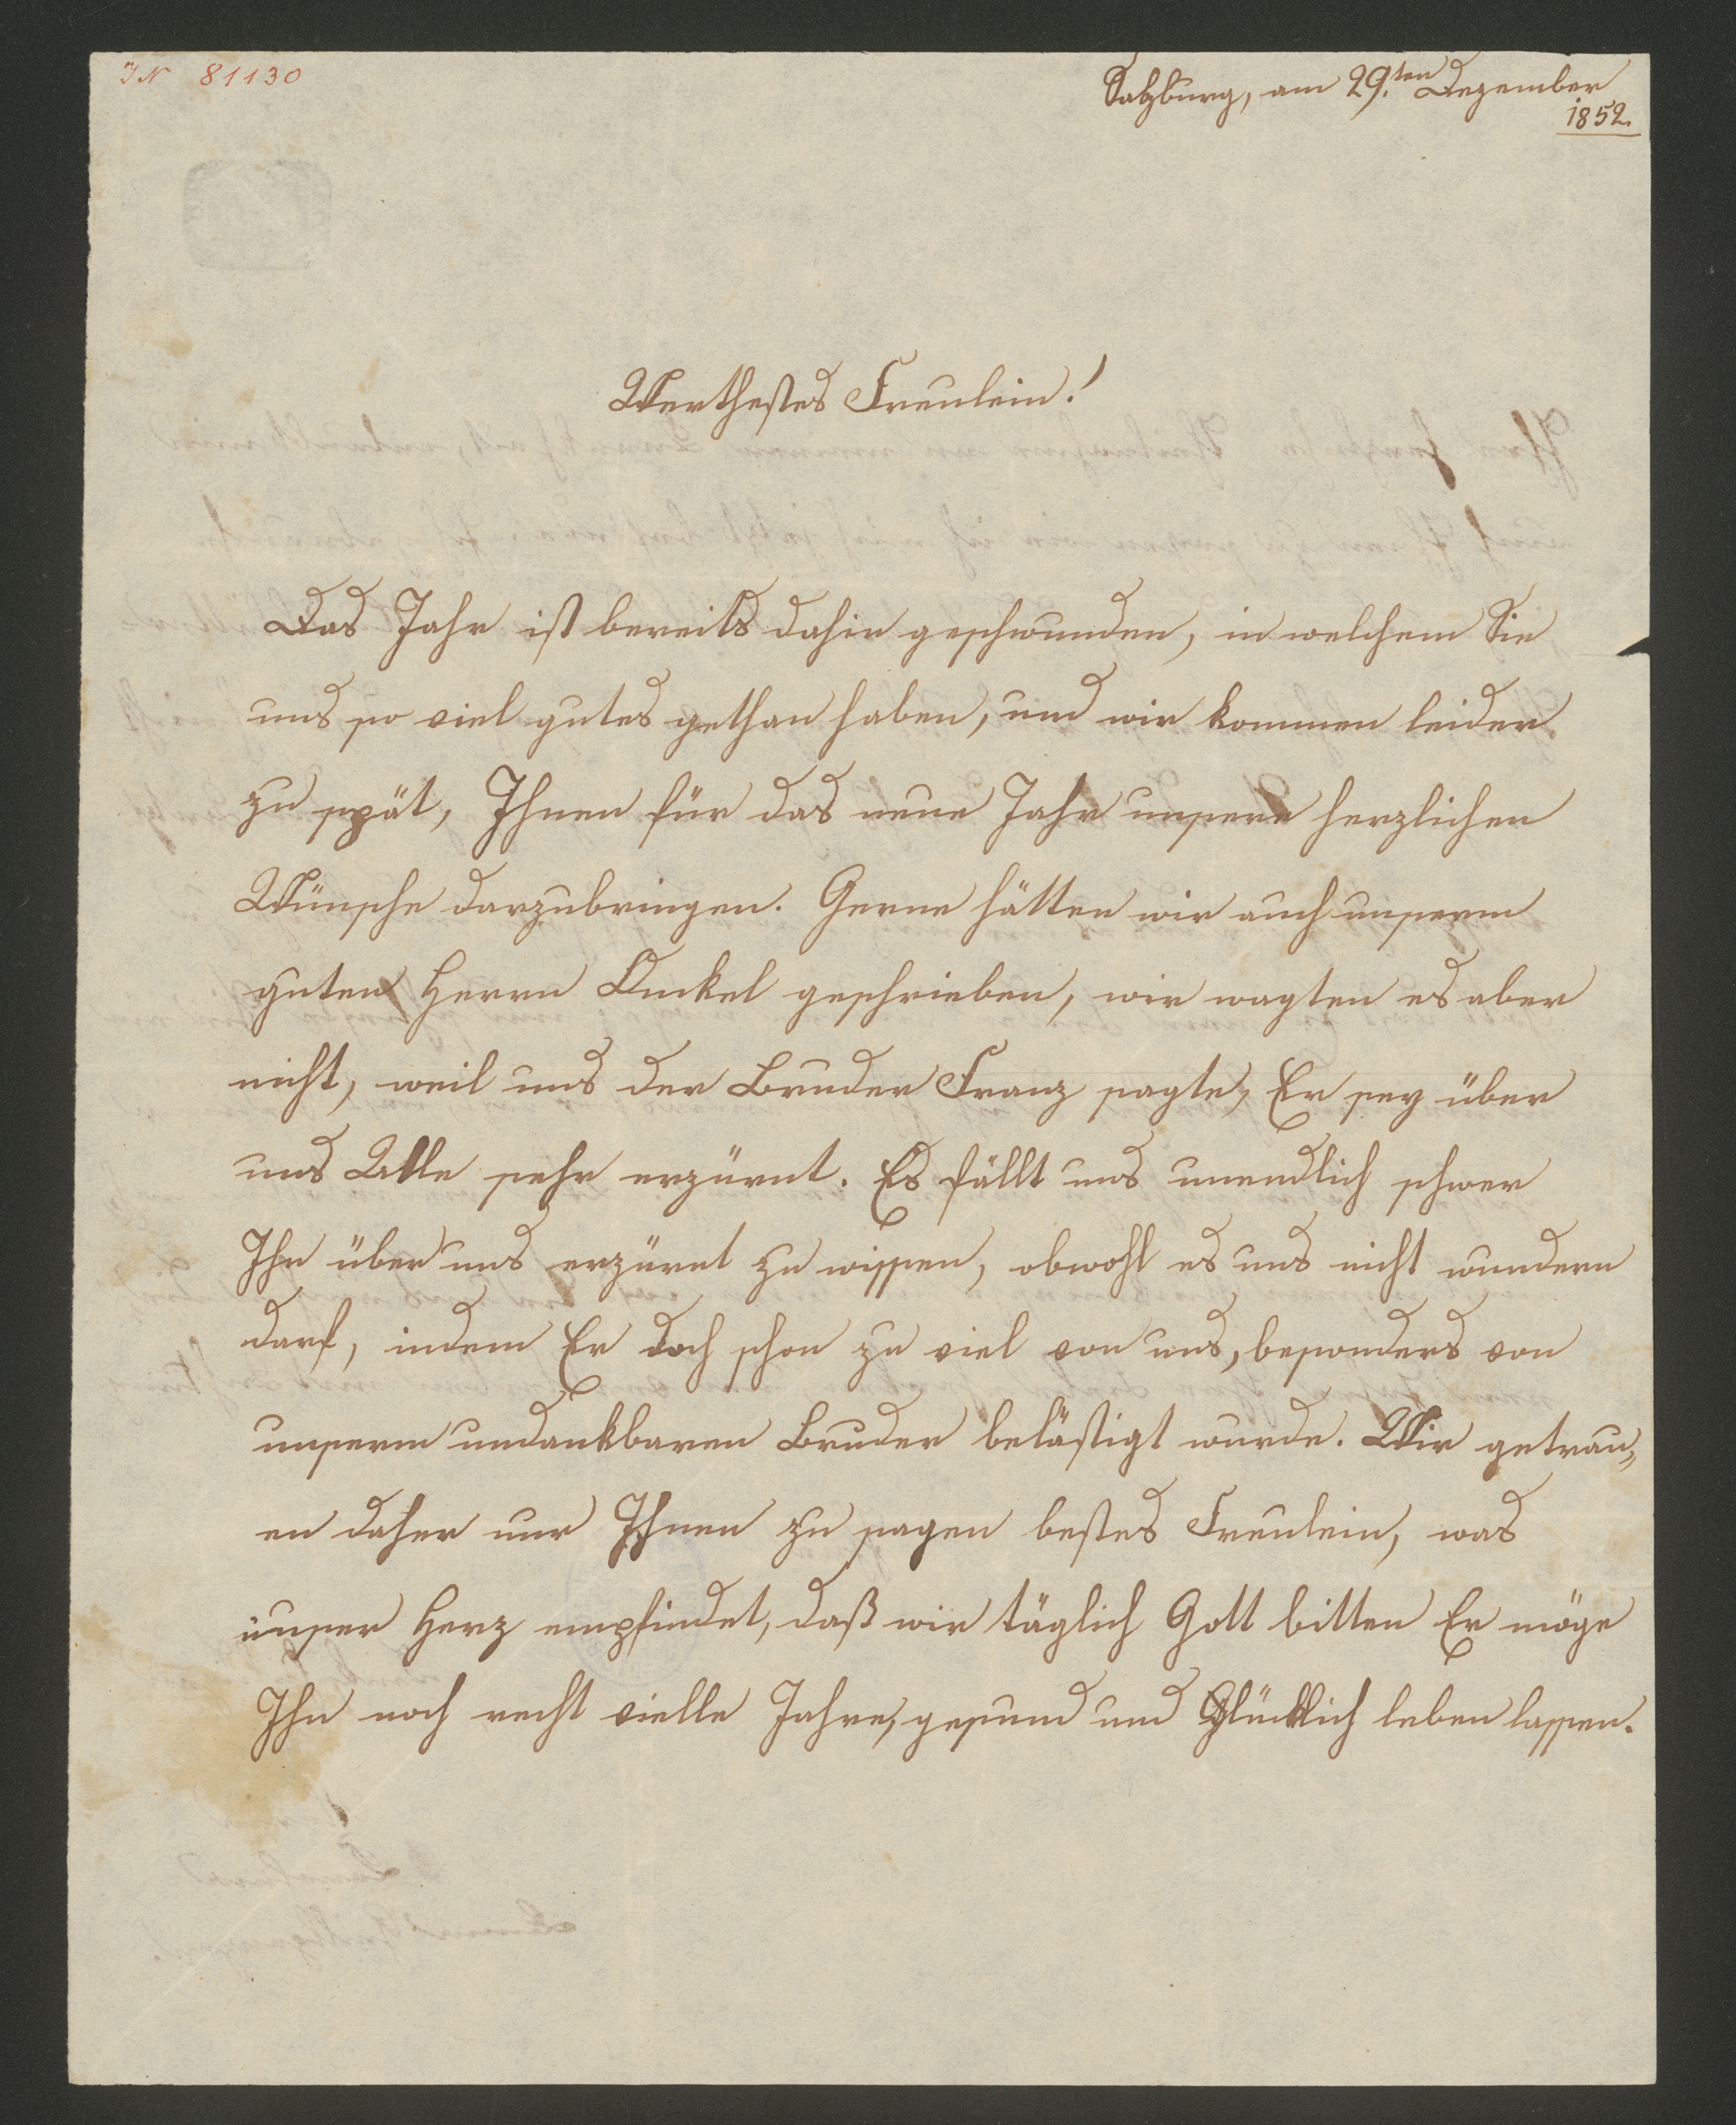 IN 81130
Salzburg, am 29.ten Dezember
1852.
Werthestes Freulein!
Das Jahr ist bereits dahin geschwunden, in welchem Sie
uns so viel gutes gethan haben, und wir kommen leider
zu spät, Ihnen für das neue Jahr unsere herzlichen
Wünsche darzubringen. Gerne hätten wir auch unserm
guten Herrn Onkel geschrieben, wir wagten es aber
nicht, weil uns der Bruder Franz sagte, Er sey über
uns Alle sehr erzürnt. Es fällt uns unendlich schwer
Ihn über uns erzürnt zu wissen, obwohl es uns nicht wundern
darf, indem Er doch schon zu viel von uns, besonders von
unserm undankbaren Bruder belästigt wurde. Wir getrau„
en daher nur Ihnen zu sagen bestes Freulein, was
unser Herz empfindet, daß wir täglich Gott bitten Er möge
Ihn noch recht vielle Jahre, gesund und Glücklich leben lassen.